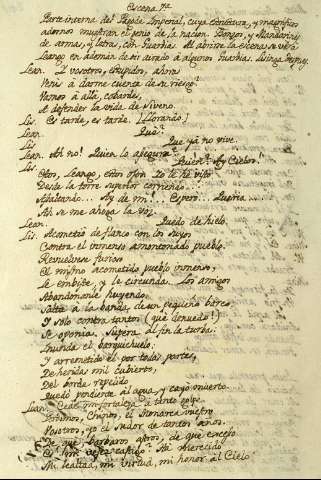 Escena 7ª
Parte interna del Palacio Imperial, cuya estructura, y magnificos
adornos muestran el genio de la nacion. Bonzos, y Mandarines
de armas, y letras, con Guardias. Al abrirse la escena se verá
Leango en ademan de ira a algunos Guardias. Lisinga despues.
Lean. Y vosotros, estupidos, ahora
Venis á darme cuenta de su riesgo?
Vamos á allá, cobardes,
A defender la vida de Siveno.
Lis. Es tarde, es tarde. [Llorando]
Lean. Que?
Lis. Que ya no vive.
Lean. Ah no! Quien lo asegura?
Lis. Quien? Ay Cielos!
Estos, Leango, estos ojos. Yo le he visto
Desde la torre superior corriendo
Asaltando... Ay de mi!... Espero... Queria...
Ah se me ahoga la voz.
Lean. Quedo de hielo.
Lis. Acometió de flanco con los suyos
Contra el inmenso amontonado pueblo.
Revuelvese furioso
El mismo acometido pueblo inmenso,
Le embiste, y le circunda. Los amigos
Abandonanle huyendo.
Salta á la banda de un pequeño barco
Y solo contra tantos (que denuedo!)
Se oponia. Supera al fin la turba:
Inunda el barquichuelo:
Y arremetido él por todas partes,
De heridas mil cubierto,
Del borde repelido
Quedó pendiente al agua, y cayó muerto.
Lean. Cede mi fortaleza á tanto golpe.
Bárbaros, Chinos, el Monarca vuestro
Vosotros, yo el sudor de tantos años.
De que barbaros astros, de que exceso
Mi merecido
Mi lealtad, mi virtud, mi honor al Cielo?